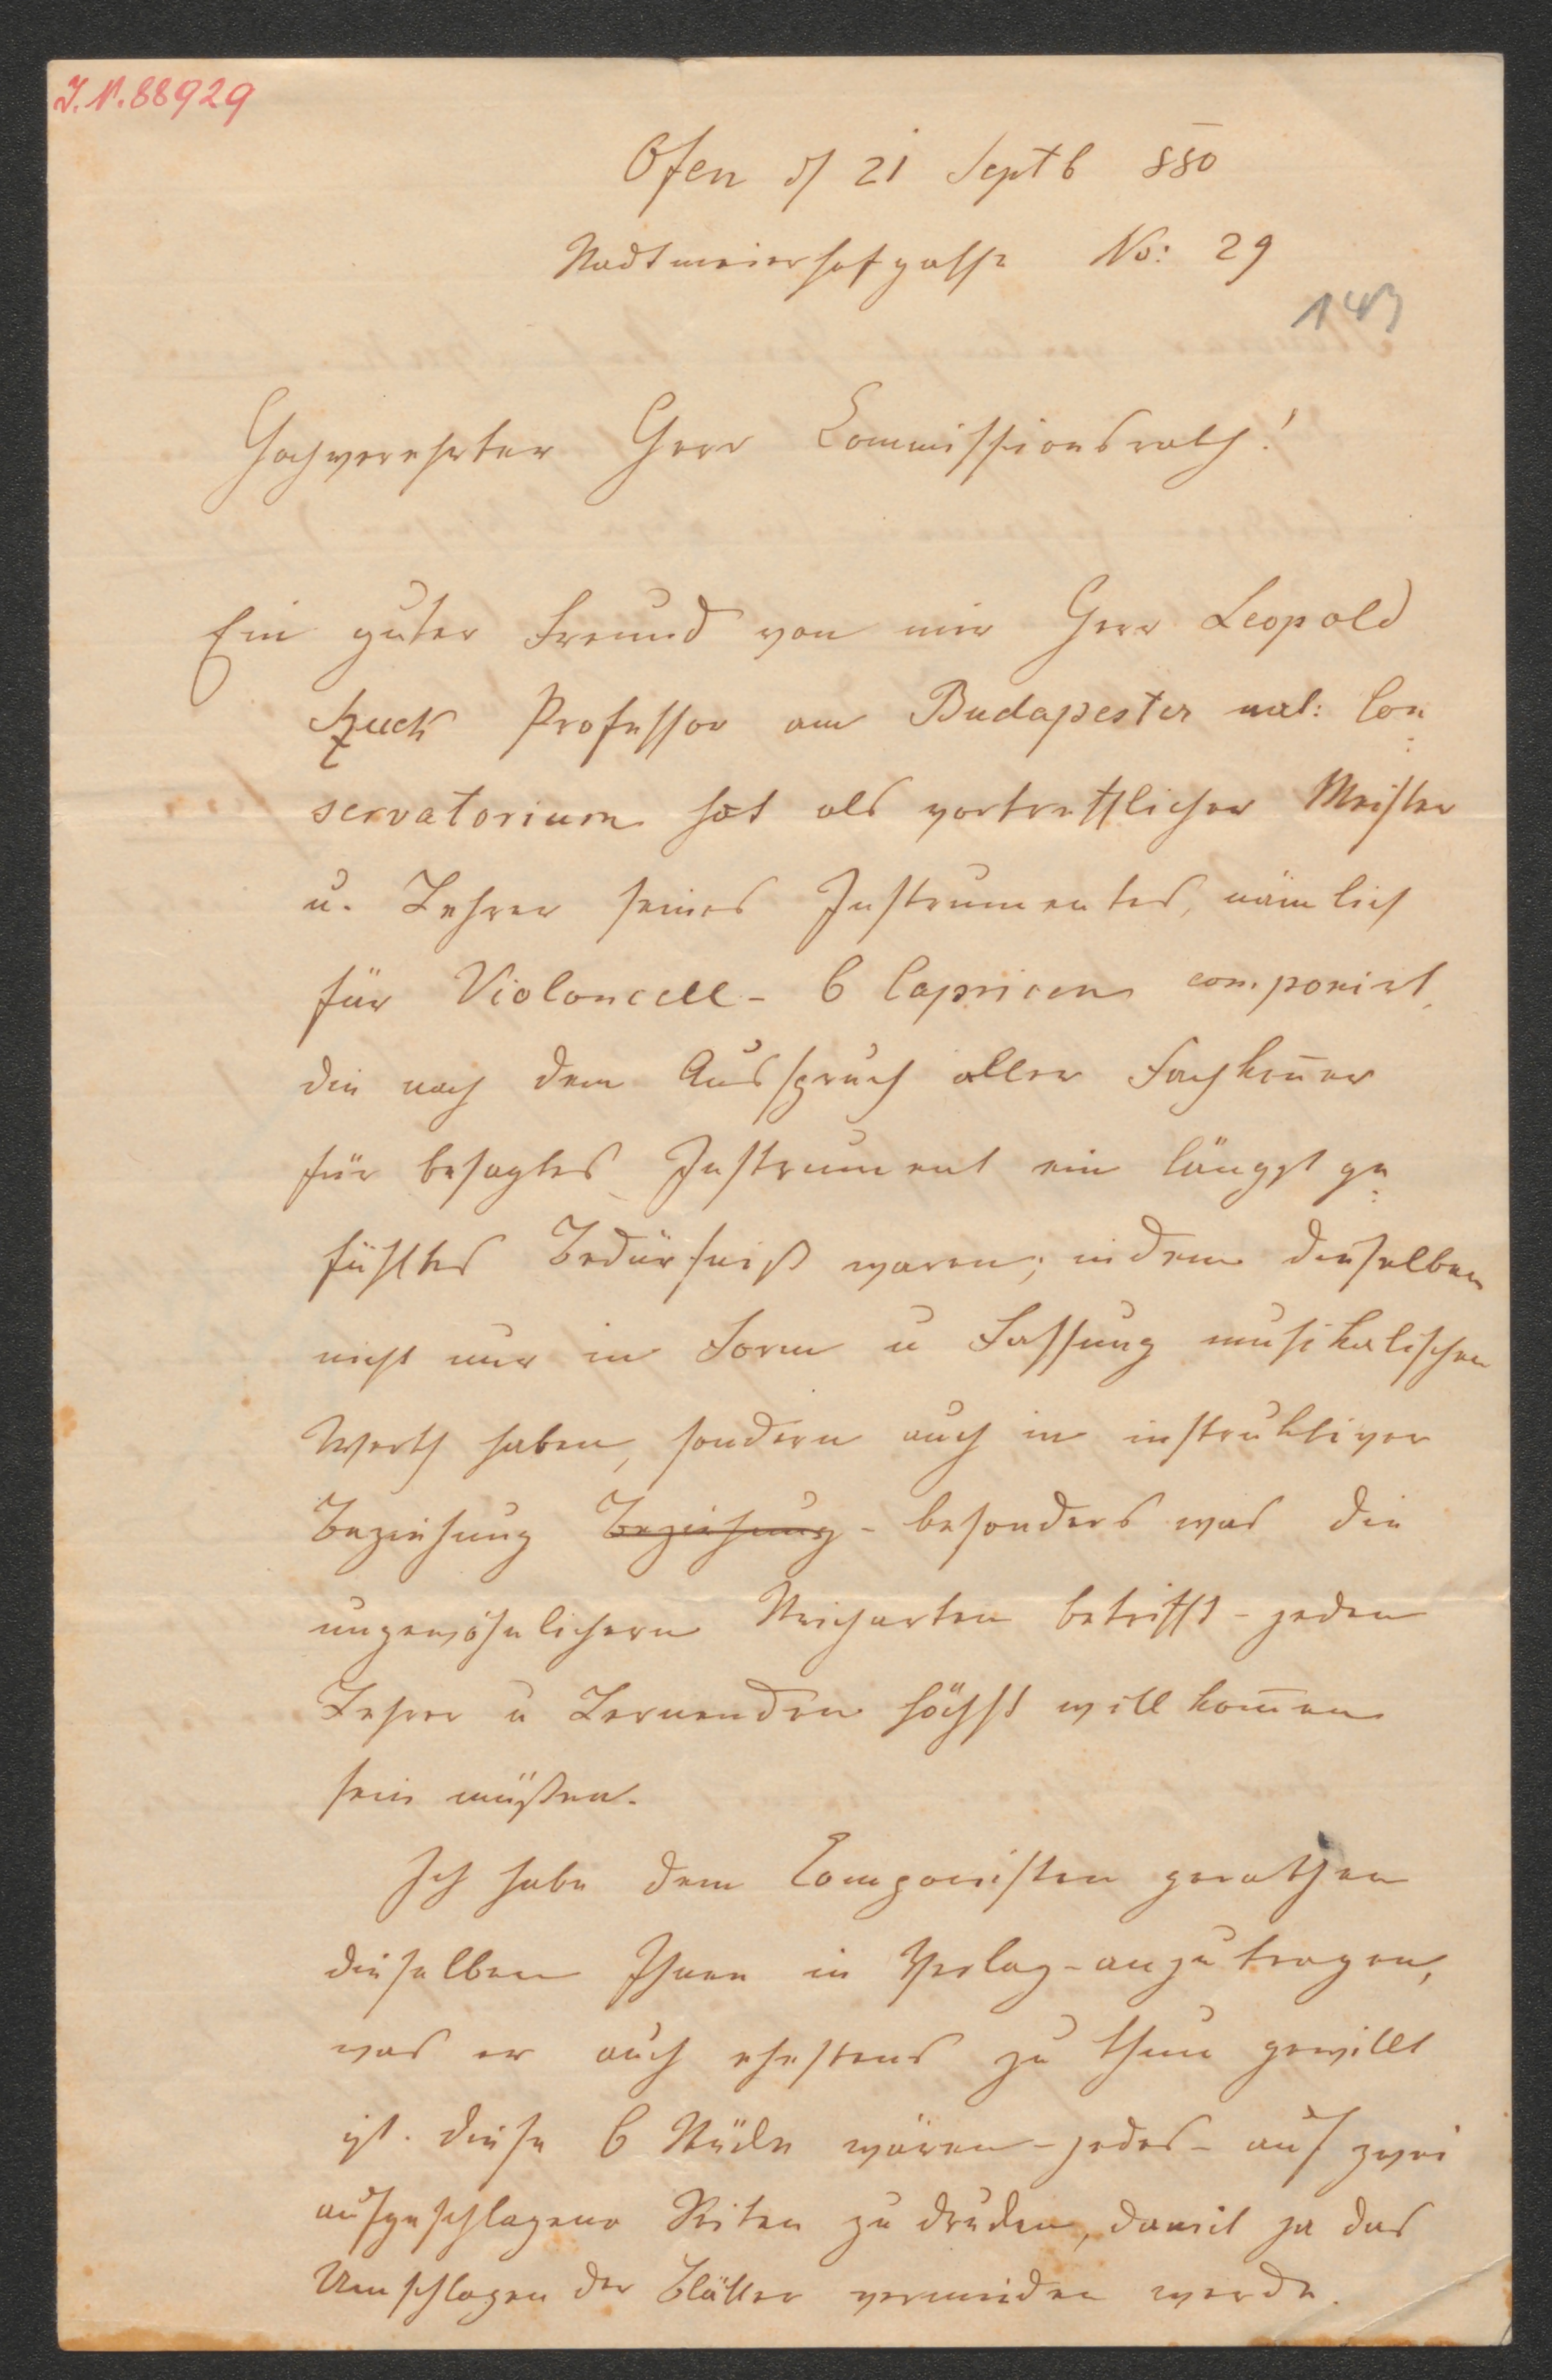 I.N. 88929
Ofen d/ 21 Septb 880
Stadtmeierhofgasse No: 29
143
Hochverehrter Herr Commissionsrath!
Ein guter Freund von mir Herr Leopold
Szuck Professor am Budapester nat: Con
servatorium hat als vortrefflicher Meister
u. Lehrer seines Instrumentes, nämlich
für Violoncell - 6 Capricen componirt,
die nach dem Ausspruch aller Fachken̄er
für besagtes Instrument ein längst ge-
fühltes Bedürfniß waren; indem dieselben
nicht nur in Form u Fassung musikalischen
Werth haben, sondern auch in instruktiver
Beziehung Beziehung - besonders was die
ungewöhnlichern Stricharten betrifft - jedem
Lehrer u Lernenden höchst willkom̄en
sein müßen.
Ich habe dem Componisten gerathen
dieselben Ihnen in Verlag - anzutragen,
was er auch ehestens zu thun gewillt
ist. Diese 6 Stücke wären - jedes - auf zwei
aufgeschlagene Seiten zu drucken, damit ja das
Umschlagen der Blätter vermieden werde.